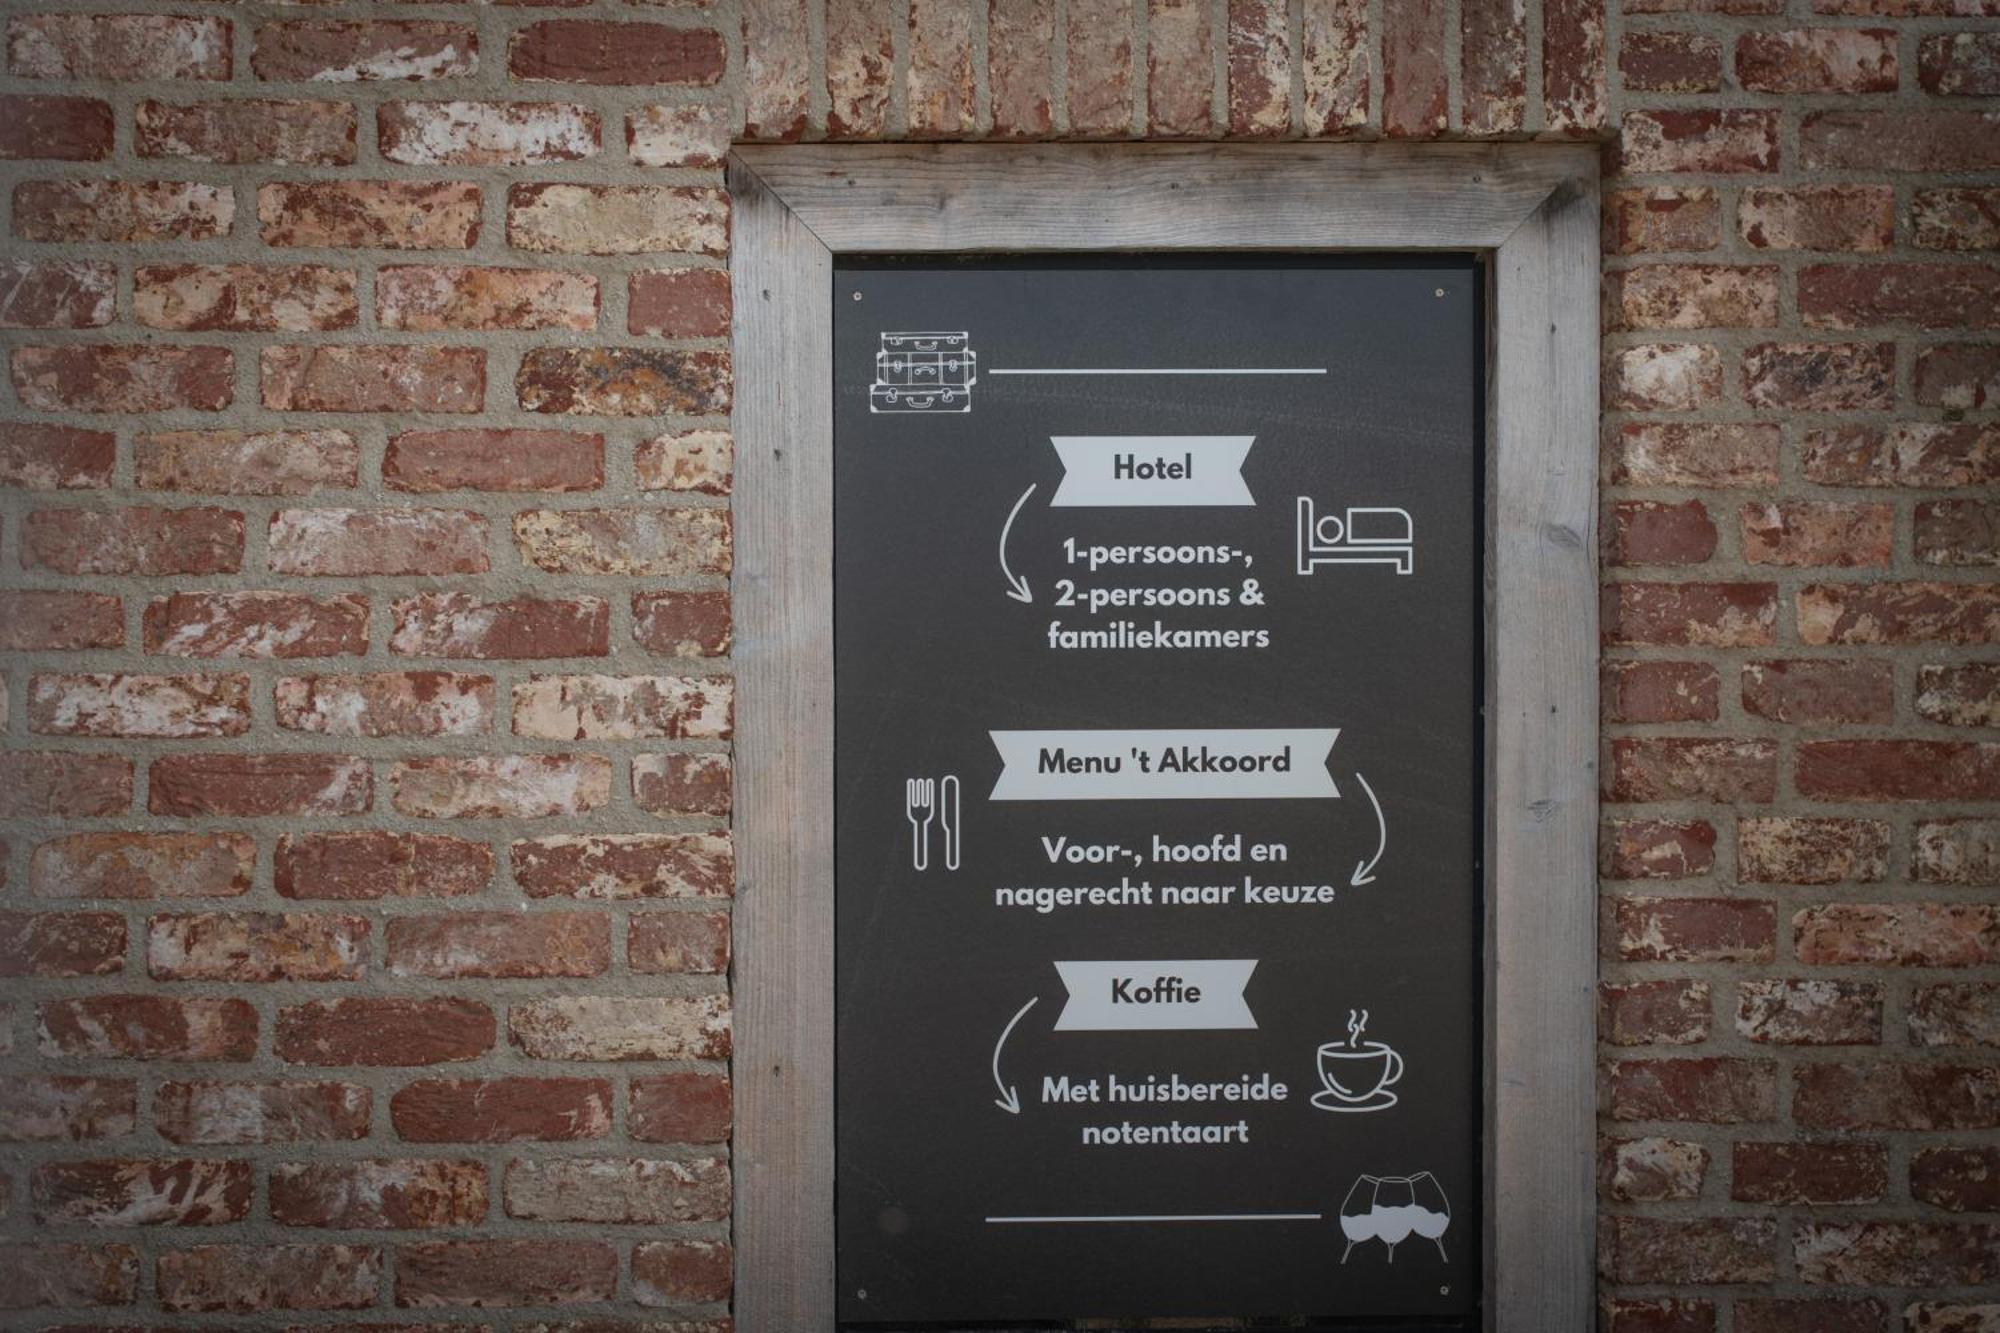 Hotel
1-persoons-,
2-persoons &
familiekamers
Menu 't Akkoord
Voor-, hoofd en
nagerecht naar keuze
Koffie
Met huisbereide
notentaart